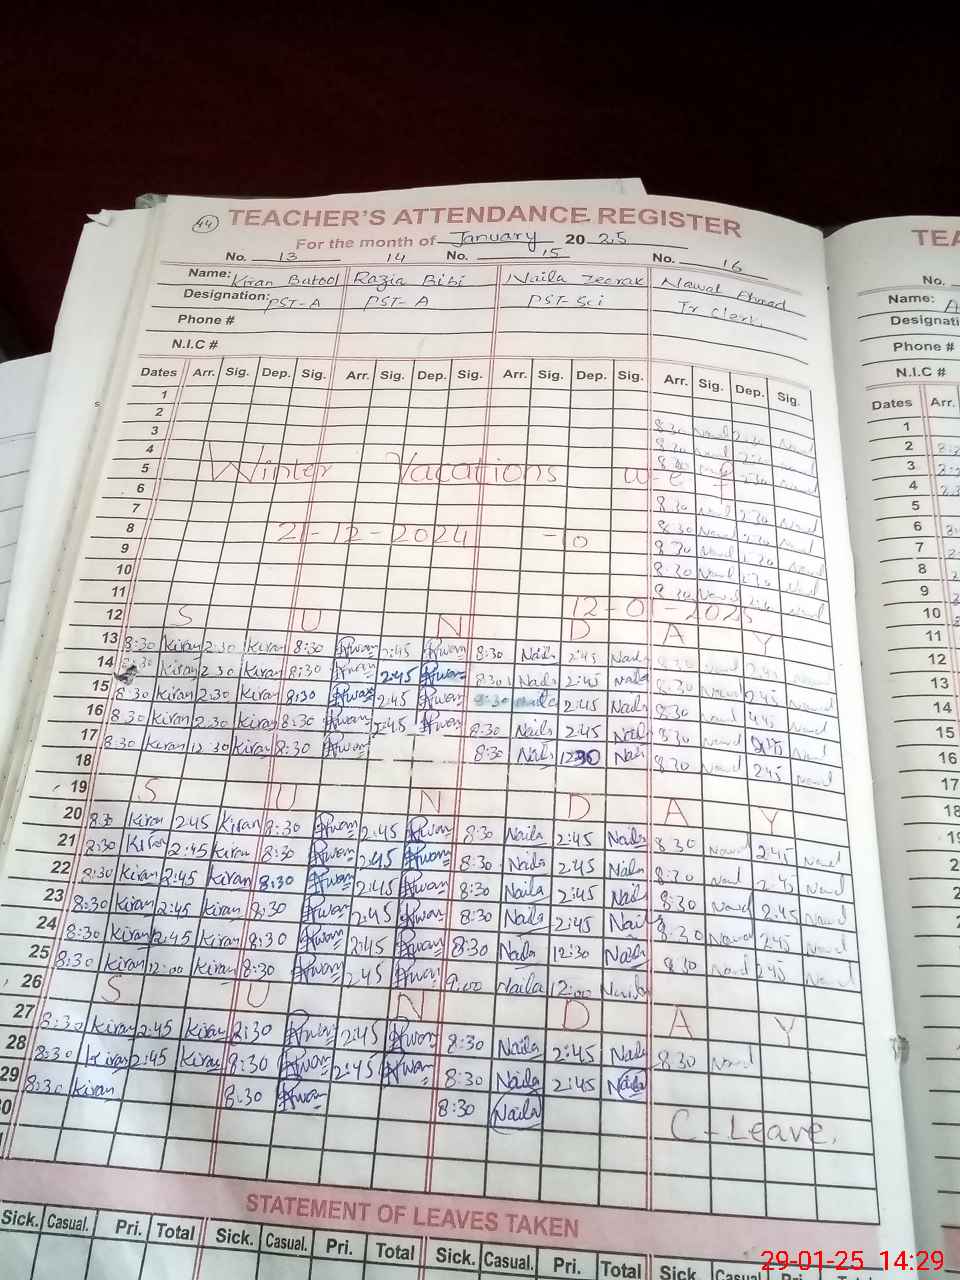 44 TEACHER'S ATTENDANCE REGISTER
For the month of January 2025
No. 13 14 No. 15 No. 16
Name: Kiran Batool Razia Bibi Naila Zeerak Nawal Ahmad
Designation: PST-A PST-A PST-Sci Jr Clerk.
Phone #
N.I.C #
Dates Arr. Sig. Dep. Sig. Arr. Sig. Dep. Sig. Arr. Sig. Dep. Sig. Arr. Sig. Dep. Sig.
1
2
3
4
Winter Vacations w.e.f
5
6
7
8 21-12-2024 - to
9
10
11
12-01-2025
12 S U N D A Y
13 8:30 Kiran 2:30 Kiran 8:30 Awan 2:45 Awan 8:30 Naila 2:45 Naila
14 8:30 Kiran 2:30 Kiran 8:30 Awan 2:45 Awan 8:30 Naila 2:45 Naila 8:30 Nawal 2:45 Nawal
15 8:30 Kiran 2:30 Kiran 8:30 Awan 2:45 Awan 8:30 Naila 2:45 Naila 8:30 Nawal
16 8:30 Kiran 2:30 Kiran 8:30 Awan 2:45 Awan 8:30 Naila 2:45 Naila 8:30 Nawal 2:45 Nawal
17 8:30 Kiran 12:30 Kiran 8:30 Awan 8:30 Naila 12:30 Naila 8:30 Nawal 2:45 Nawal
18
19 S U N D A Y
20 8:30 Kiran 2:45 Kiran 8:30 Awan 2:45 Awan 8:30 Naila 2:45 Naila 8:30 Nawal 2:45 Nawal
21 8:30 Kiran 2:45 Kiran 8:30 Awan 2:45 Awan 8:30 Naila 2:45 Naila 8:30 Nawal 2:45 Nawal
22 8:30 Kiran 2:45 Kiran 8:30 Awan 2:45 Awan 8:30 Naila 2:45 Naila 8:30 Nawal 2:45 Nawal
23 8:30 Kiran 2:45 Kiran 8:30 Awan 2:45 Awan 8:30 Naila 2:45 Naila 8:30 Nawal 2:45 Nawal
24 8:30 Kiran 2:45 Kiran 8:30 Awan 2:45 Awan 8:30 Naila 12:30 Naila 8:30 Nawal 2:45 Nawal
25 8:30 Kiran 12:00 Kiran 8:30 Awan 2:45 Awan 9:00 Naila 12:00 Naila
26 S U N D A Y
27 8:30 Kiran 2:45 Kiran 2:30 Awan 2:45 Awan 8:30 Naila 2:45 Naila 8:30 Nawal
28 8:30 Kiran 2:45 Kiran 8:30 Awan 2:45 Awan 8:30 Naila 2:45 Naila
29 8:30 Kiran 8:30 Awan 8:30 Naila C-Leave.
STATEMENT OF LEAVES TAKEN
Sick. Casual. Pri. Total Sick. Casual. Pri. Total Sick. Casual. Pri. Total Sick. Casual Pri. Total
TEA
No.
Name: A
Designati
Phone #
N.I.C #
Dates Arr.
1
2
3
4
5
6
7
8
9
10
11
12
13
14
15
16
17
18
29-01-25 14:29